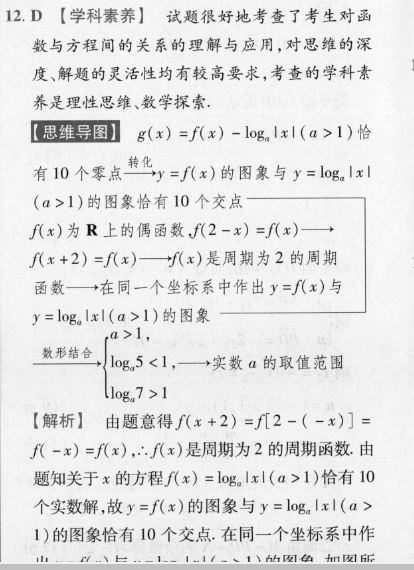 12. D 【学科素养】 试题很好地考查了考生对函
数与方程间的关系的理解与应用,对思维的深
度、解题的灵活性均有较高要求,考查的学科素
养是理性思维、数学探索.
【思维导图】 g(x)=f(x)-logₐ|x|(a>1)恰
有10个零点 转化→ y=f(x)的图象与y=logₐ|x|
(a>1)的图象恰有10个交点
f(x)为R上的偶函数,f(2-x)=f(x)→
f(x+2)=f(x)→f(x)是周期为2的周期
函数→在同一个坐标系中作出y=f(x)与
y=logₐ|x|(a>1)的图象
数形结合→ { a>1,
logₐ5<1, →实数a的取值范围
logₐ7>1
【解析】 由题意得f(x+2)=f[2-(-x)]=
f(-x)=f(x),∴f(x)是周期为2的周期函数.由
题知关于x的方程f(x)=logₐ|x|(a>1)恰有10
个实数解,故y=f(x)的图象与y=logₐ|x|(a>
1)的图象恰有10个交点.在同一个坐标系中作